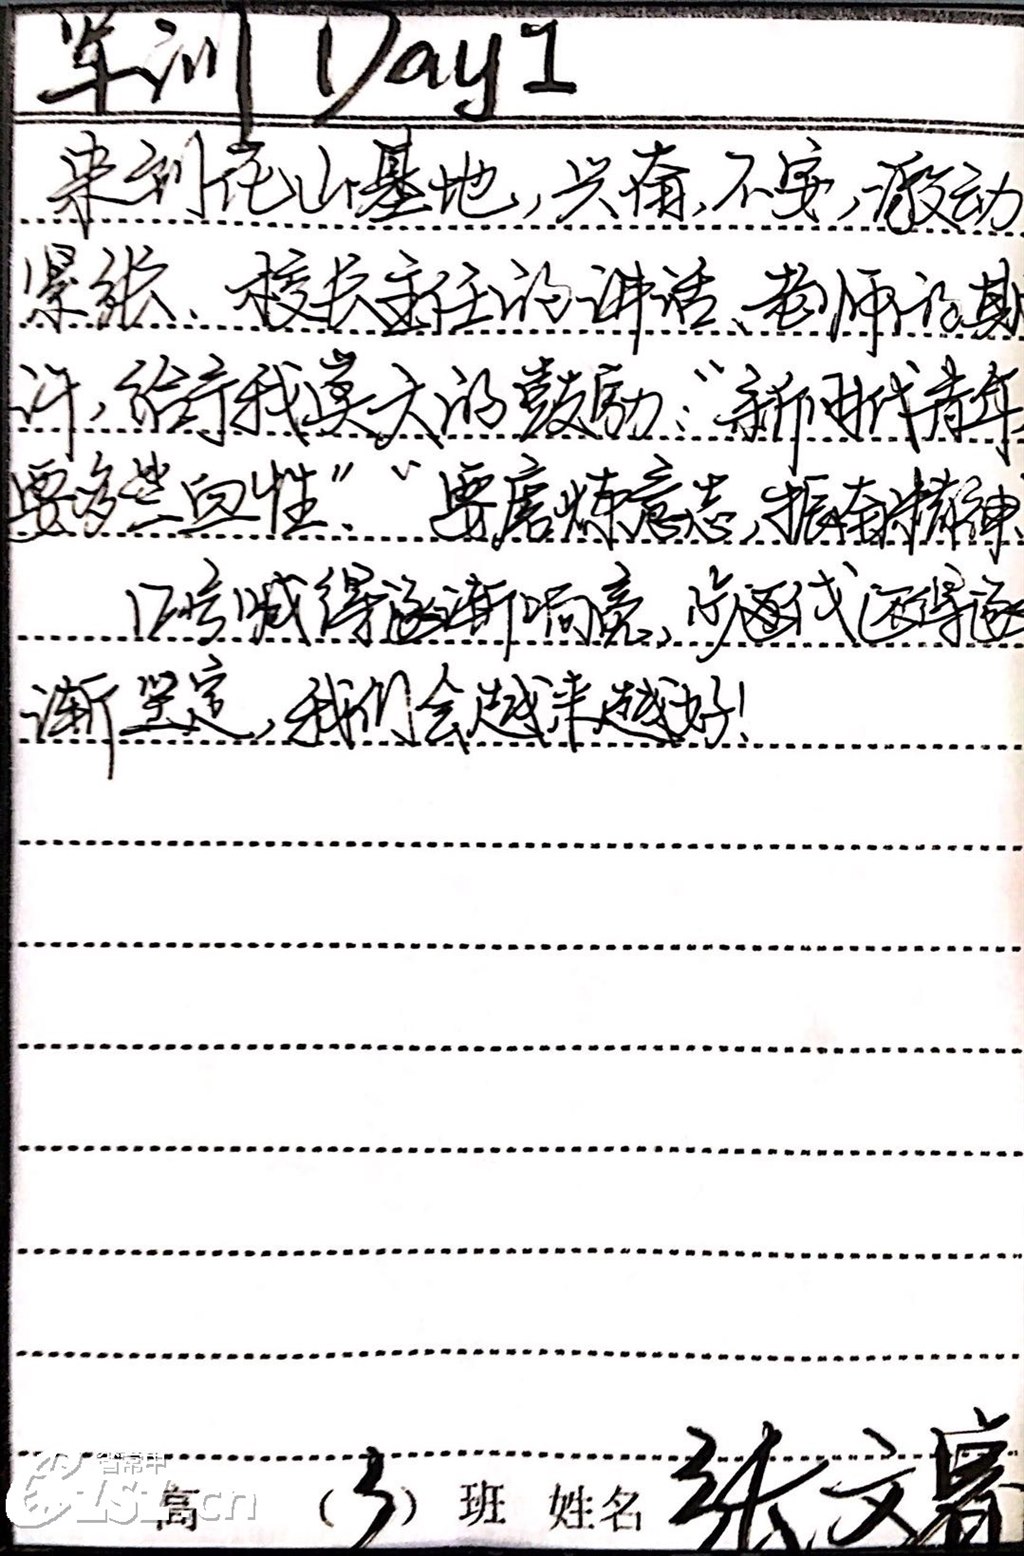 军训 Day1
来到花山基地,兴奋,不安,激动
紧张、校长主任的讲话、老师的期
许,给予我莫大的鼓励:“新时代青年
要多些血性”、“要磨炼意志,振奋精神
口号喊得逐渐响亮,步伐迈得逐
渐坚定,我们会越来越好!
高 (3)班 姓名 张文
省常中